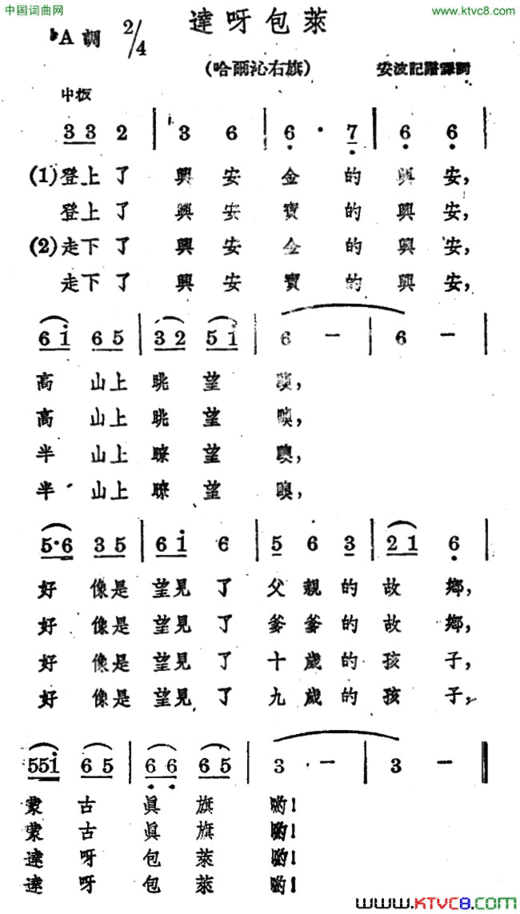 中国词曲网
www.ktvc8.com
達呀包萊
♭A調 2/4
(哈爾沁右旗)
安波記譜譯詞
中板
3 3 2 | 3 6 | 6 · 7 | 6 6 |
(1)登上了 興安 金的 興安,
登上了 興安 寶的 興安,
(2)走下了 興安 金的 興安,
走下了 興安 寶的 興安,
6 i 6 5 | 3 2 5 i | 6 — | 6 — |
高 山上 眺 望 噢,
高 山上 眺 望 噢,
半 山上 瞭 望 噢,
半 山上 瞭 望 噢,
5·6 3 5 | 6 i 6 | 5 6 3 | 2 1 6 |
好 像是 望見了 父親的 故 鄉,
好 像是 望見了 爹爹的 故 鄉,
好 像是 望見了 十歲的 孩 子,
好 像是 望見了 九歲的 孩 子,
5 5 i 6 5 | 6 6 6 5 | 3 — | 3 — ‖
蒙 古 眞 旗 喲!
蒙 古 眞 旗 喲!
達 呀 包 萊 喲!
達 呀 包 萊 喲!
www.KTVC8.com